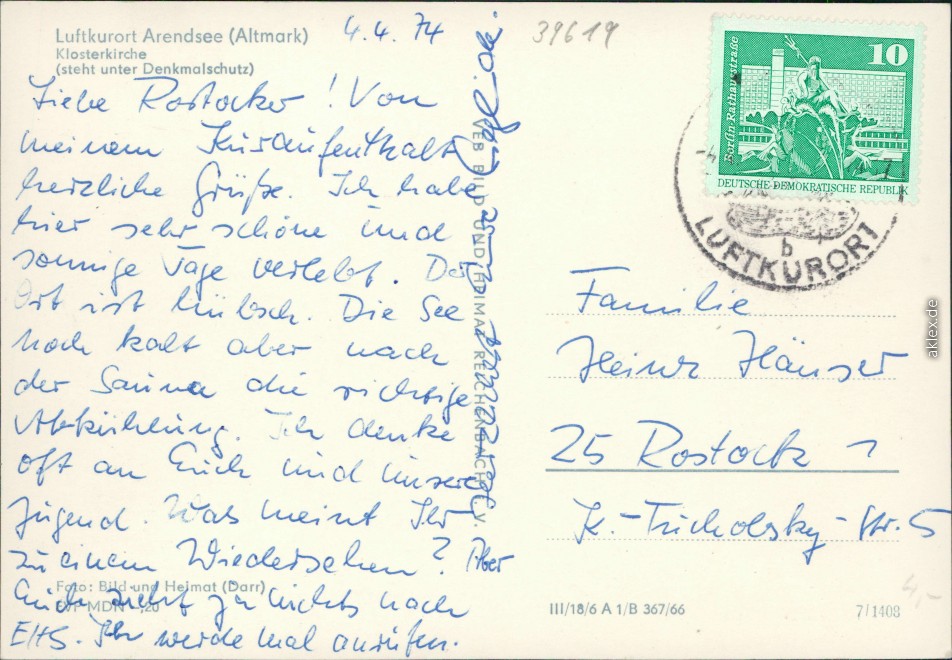 Luftkurort Arendsee (Altmark)
Klosterkirche
(steht unter Denkmalschutz)
4.4.74
39619
Liebe Rostocker! Von
meinem Kuraufenthalt
herzliche Grüße. Ich habe
hier sehr schöne und
sonnige Tage verlebt. Der
Ort ist hübsch. Die See
noch kalt aber nach
der Sauna die richtige
Abkühlung. Ich denke
oft an Euch und unsere
Jugend. Was meint Ihr
zu einem Wiedersehen? Aber
Euch zieht ja nichts nach
EHS. Ich werde mal anrufen.
Foto: Bild und Heimat (Darr)
VEB BILD UND HEIMAT REICHENBACH i. V.
10
Berlin-Rathausstraße
DEUTSCHE DEMOKRATISCHE REPUBLIK
b
LUFTKURORT
Familie
Heinz Häuser
25 Rostock 1
K.-Tucholsky-Str. 5
III/18/6 A 1/B 367/66
7/1408
4,-
aklex.de